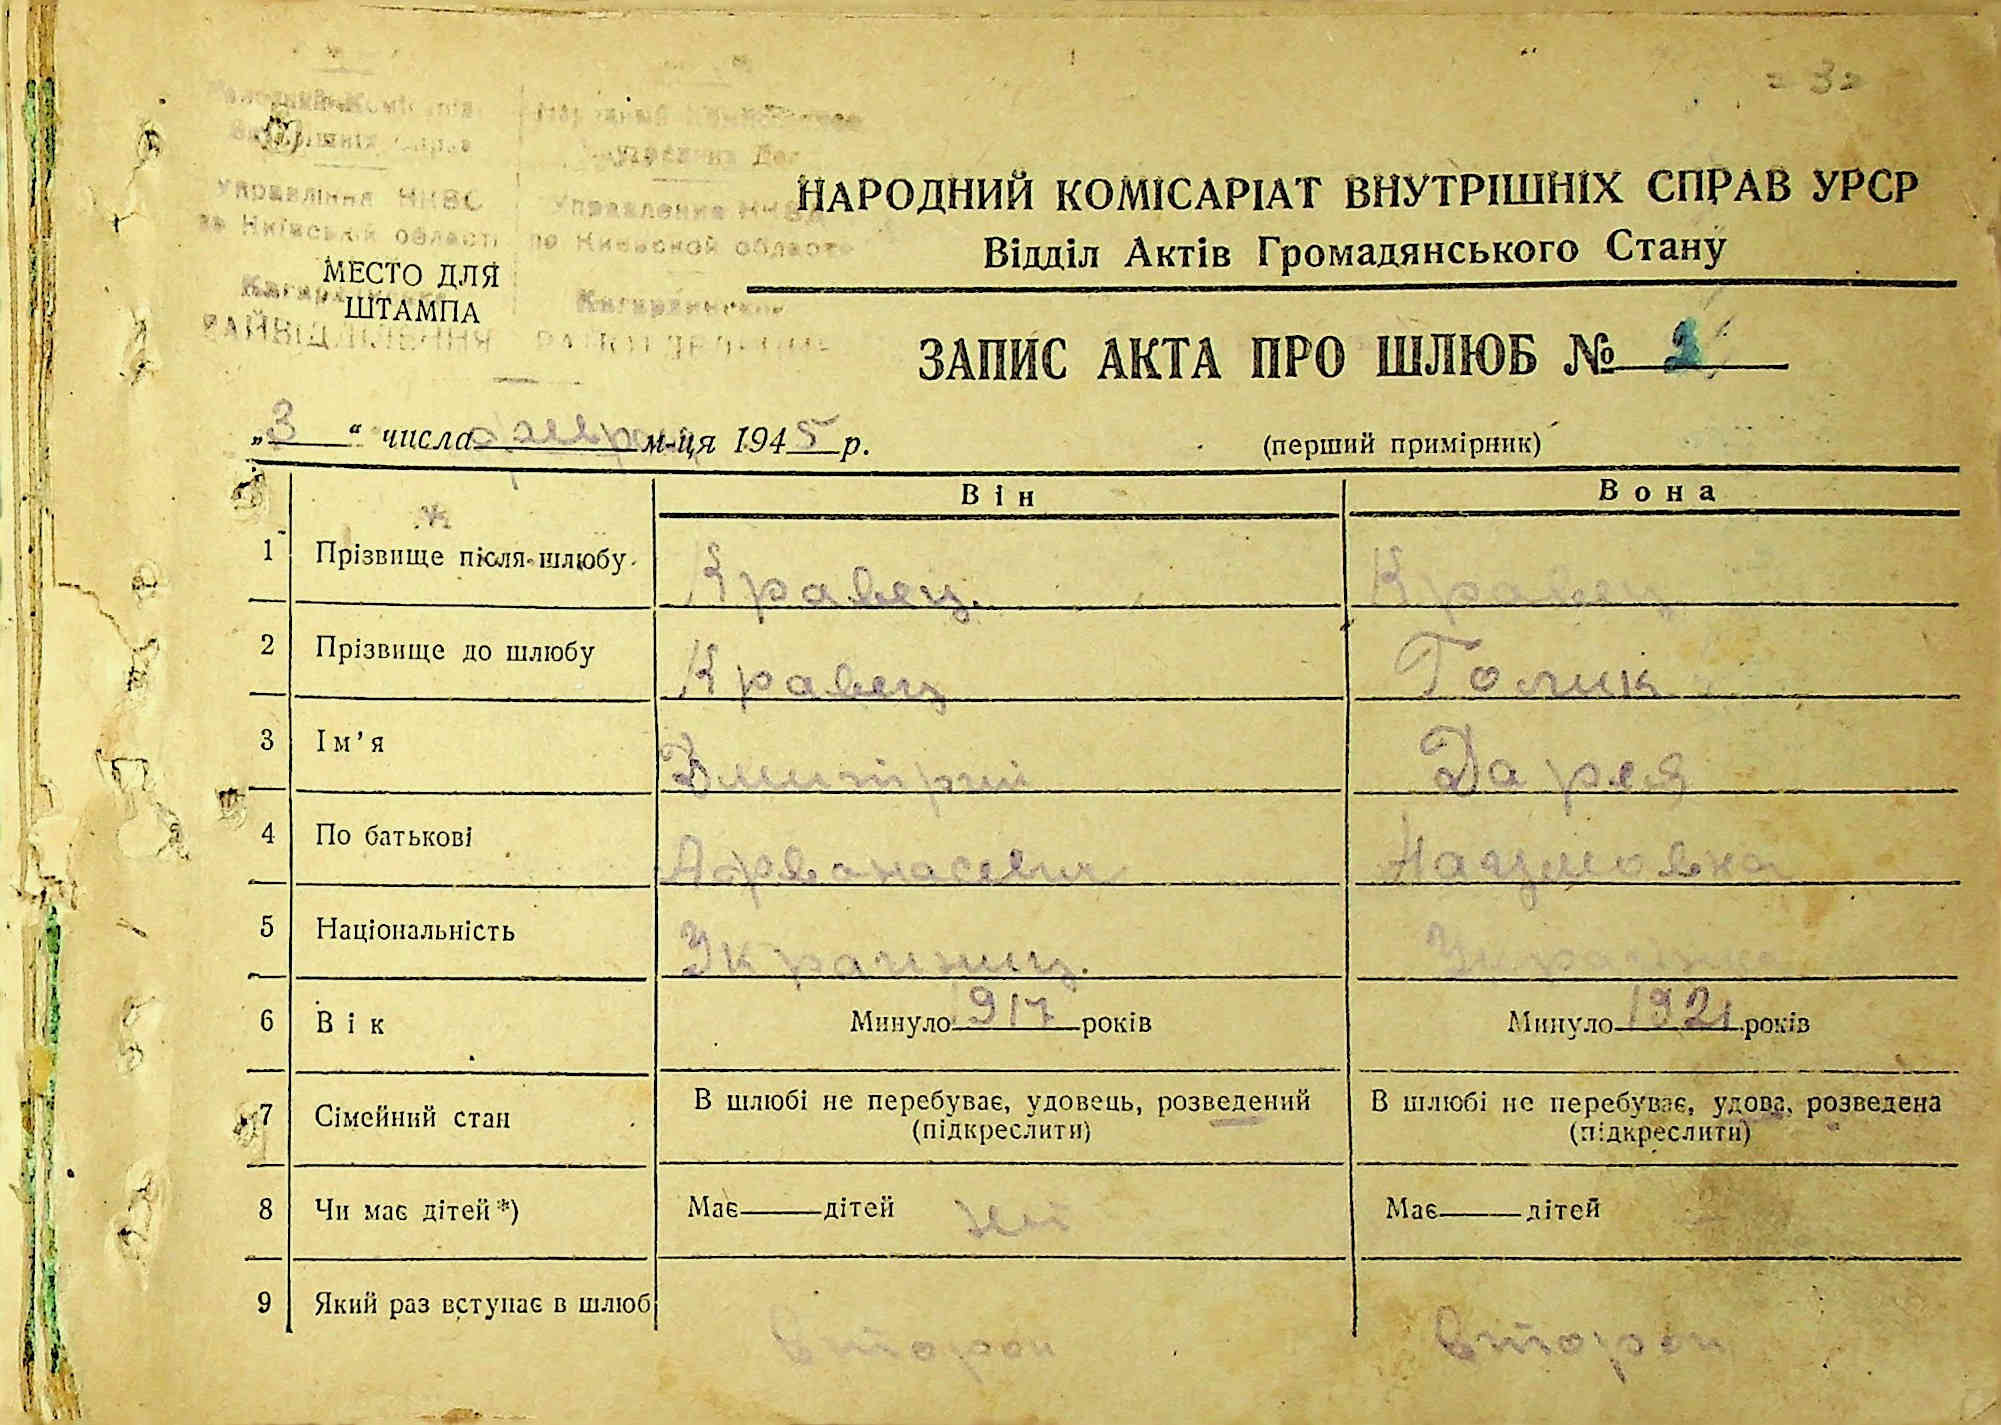 - 3 -
Народний Комісаріат Народный Комиссариат
Внутрішніх Справ Внутренних Дел
Управління НКВС Управление НКВД
по Київській області по Киевской области
НАРОДНИЙ КОМІСАРІАТ ВНУТРІШНІХ СПРАВ УРСР
Відділ Актів Громадянського Стану
МЕСТО ДЛЯ
ШТАМПА
РАЙВІДДІЛЕННЯ
ЗАПИС АКТА ПРО ШЛЮБ № 2
„3“ числа февраля м-ця 1945 р. (перший примірник)
Він Вона
1 Прізвище після шлюбу Кравец. Кравец
2 Прізвище до шлюбу Кравец Голик
3 Ім'я Дмитрий Дарея
4 По батькові Афванасевич Наумовна
5 Національність Украинец. Украинка
6 Вік Минуло 1917 років Минуло 1921 років
7 Сімейний стан В шлюбі не перебуває, удовець, розведений В шлюбі не перебуває, удова, розведена
(підкреслити) (підкреслити)
8 Чи має дітей*) Має дітей нет Має дітей
9 Який раз вступає в шлюб
второй второй